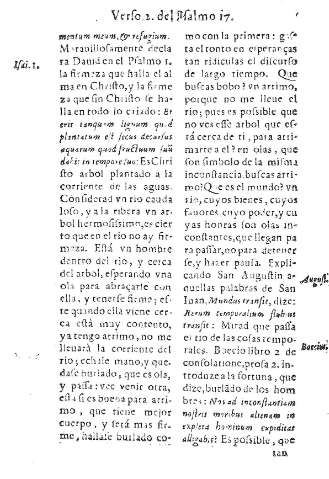 Verso 2. del Psalmo 17.
mentum meum, & refugium.
Maravillosamente decla
ra David en el Psalmo 1.
la firmeza que halla el al
ma en Christo, y la firme
za que sin Christo se ha
lla en todo lo criado: Et
erit tanquam lignum quod
plantatum est secus decursus
aquarum quod fructuum suũ
dabit in tempore suo: Es Chri
sto arbol plantado a la
corriente de las aguas.
Considerad vn rio cauda
loso, y a la ribera vn ar
bol hermosissimo, es cier
to que en el rio no ay fir
meza. Està vn hombre
dentro del rio, y cerca
del arbol, esperando vna
ola para abraçarle con
ella, y tenerse firme; es-
te quando ella viene cer-
ca està muy contento,
ya tengo arrimo, no me
lleuarà la corriente del
rio; echale mano, y que-
dase burlado, que es ola,
y passa: vee venir otra,
esta si es buena para arri-
mo, que tiene mejor
cuerpo, y serà mas fir-
me, hallase burlado co-
Psal. 1.
mo con la primera: gas-
ta el tonto en esperanças
tan ridiculas el discurso
de largo tiempo. Que
buscas bobo? vn arrimo,
porque no me lleue el
rio; pues es possible que
no ves esse arbol que es-
tà cerca de ti, para arri-
marte a el? en olas, que
son simbolo de la misma
inconstancia, buscas arri-
mo? Que es el mundo? vn
rio, cuyos bienes, cuyos
fauores cuyo poder, y cu
yas honras son olas in-
constantes, que llegan pa
ra passar, no para detener
se, y hazer pausa. Expli-
cando San Augustin a-
quellas palabras de San
Iuan, Mundus transit, dize:
Rerum temporalium flubius
transit: Mirad que passa
el rio de las cosas tempo-
rales. Boecio libro 2 de
consolatione, prosa 2. in-
troduze a la fortuna, que
dize, burlãdo de los hom
bres: Nos ad inconstantiam
nostris moribus alienam in-
expleta hominum cupiditas
alligabit? Es possible, que
tan
August.
Boecius.